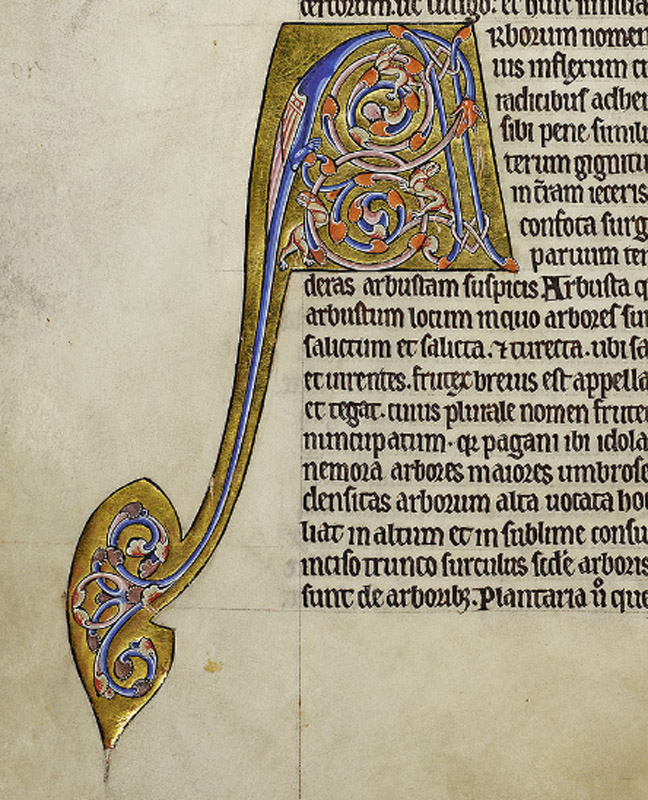 certorum. ut
Arborum nomen
ius inflexum
radicibus adher
sibi pene simili
terum gignitu
in terram ieceris
confota surg
paruum ter
deras arbustam suspicis Arbusta q
arbustum locum inquo arbores sun
salictum et salicta. ⁊ turecta. ubi sa
et uirentes. frutex breuis est appella
et tegat. cuius plurale nomen frute
nuncupatum. qꝛ pagani ibi idola
nemora arbores maiores umbrose
densitas arborum alta uocata
liat in altum et in sublime consu
inciso trunco surculus arboris
sunt de arboribꝫ. Plantaria u̾o que